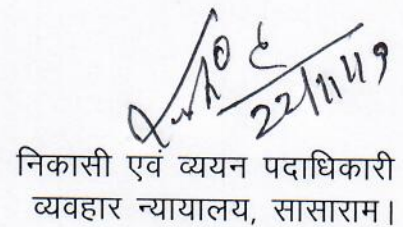 22/11/19
निकासी एवं व्ययन पदाधिकारी
व्यवहार न्यायालय, सासाराम।